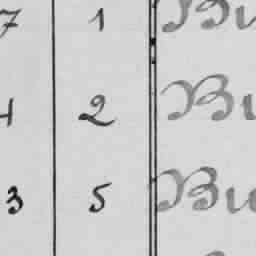 7 1 Bu
4 2 Bu
3 5 Bu